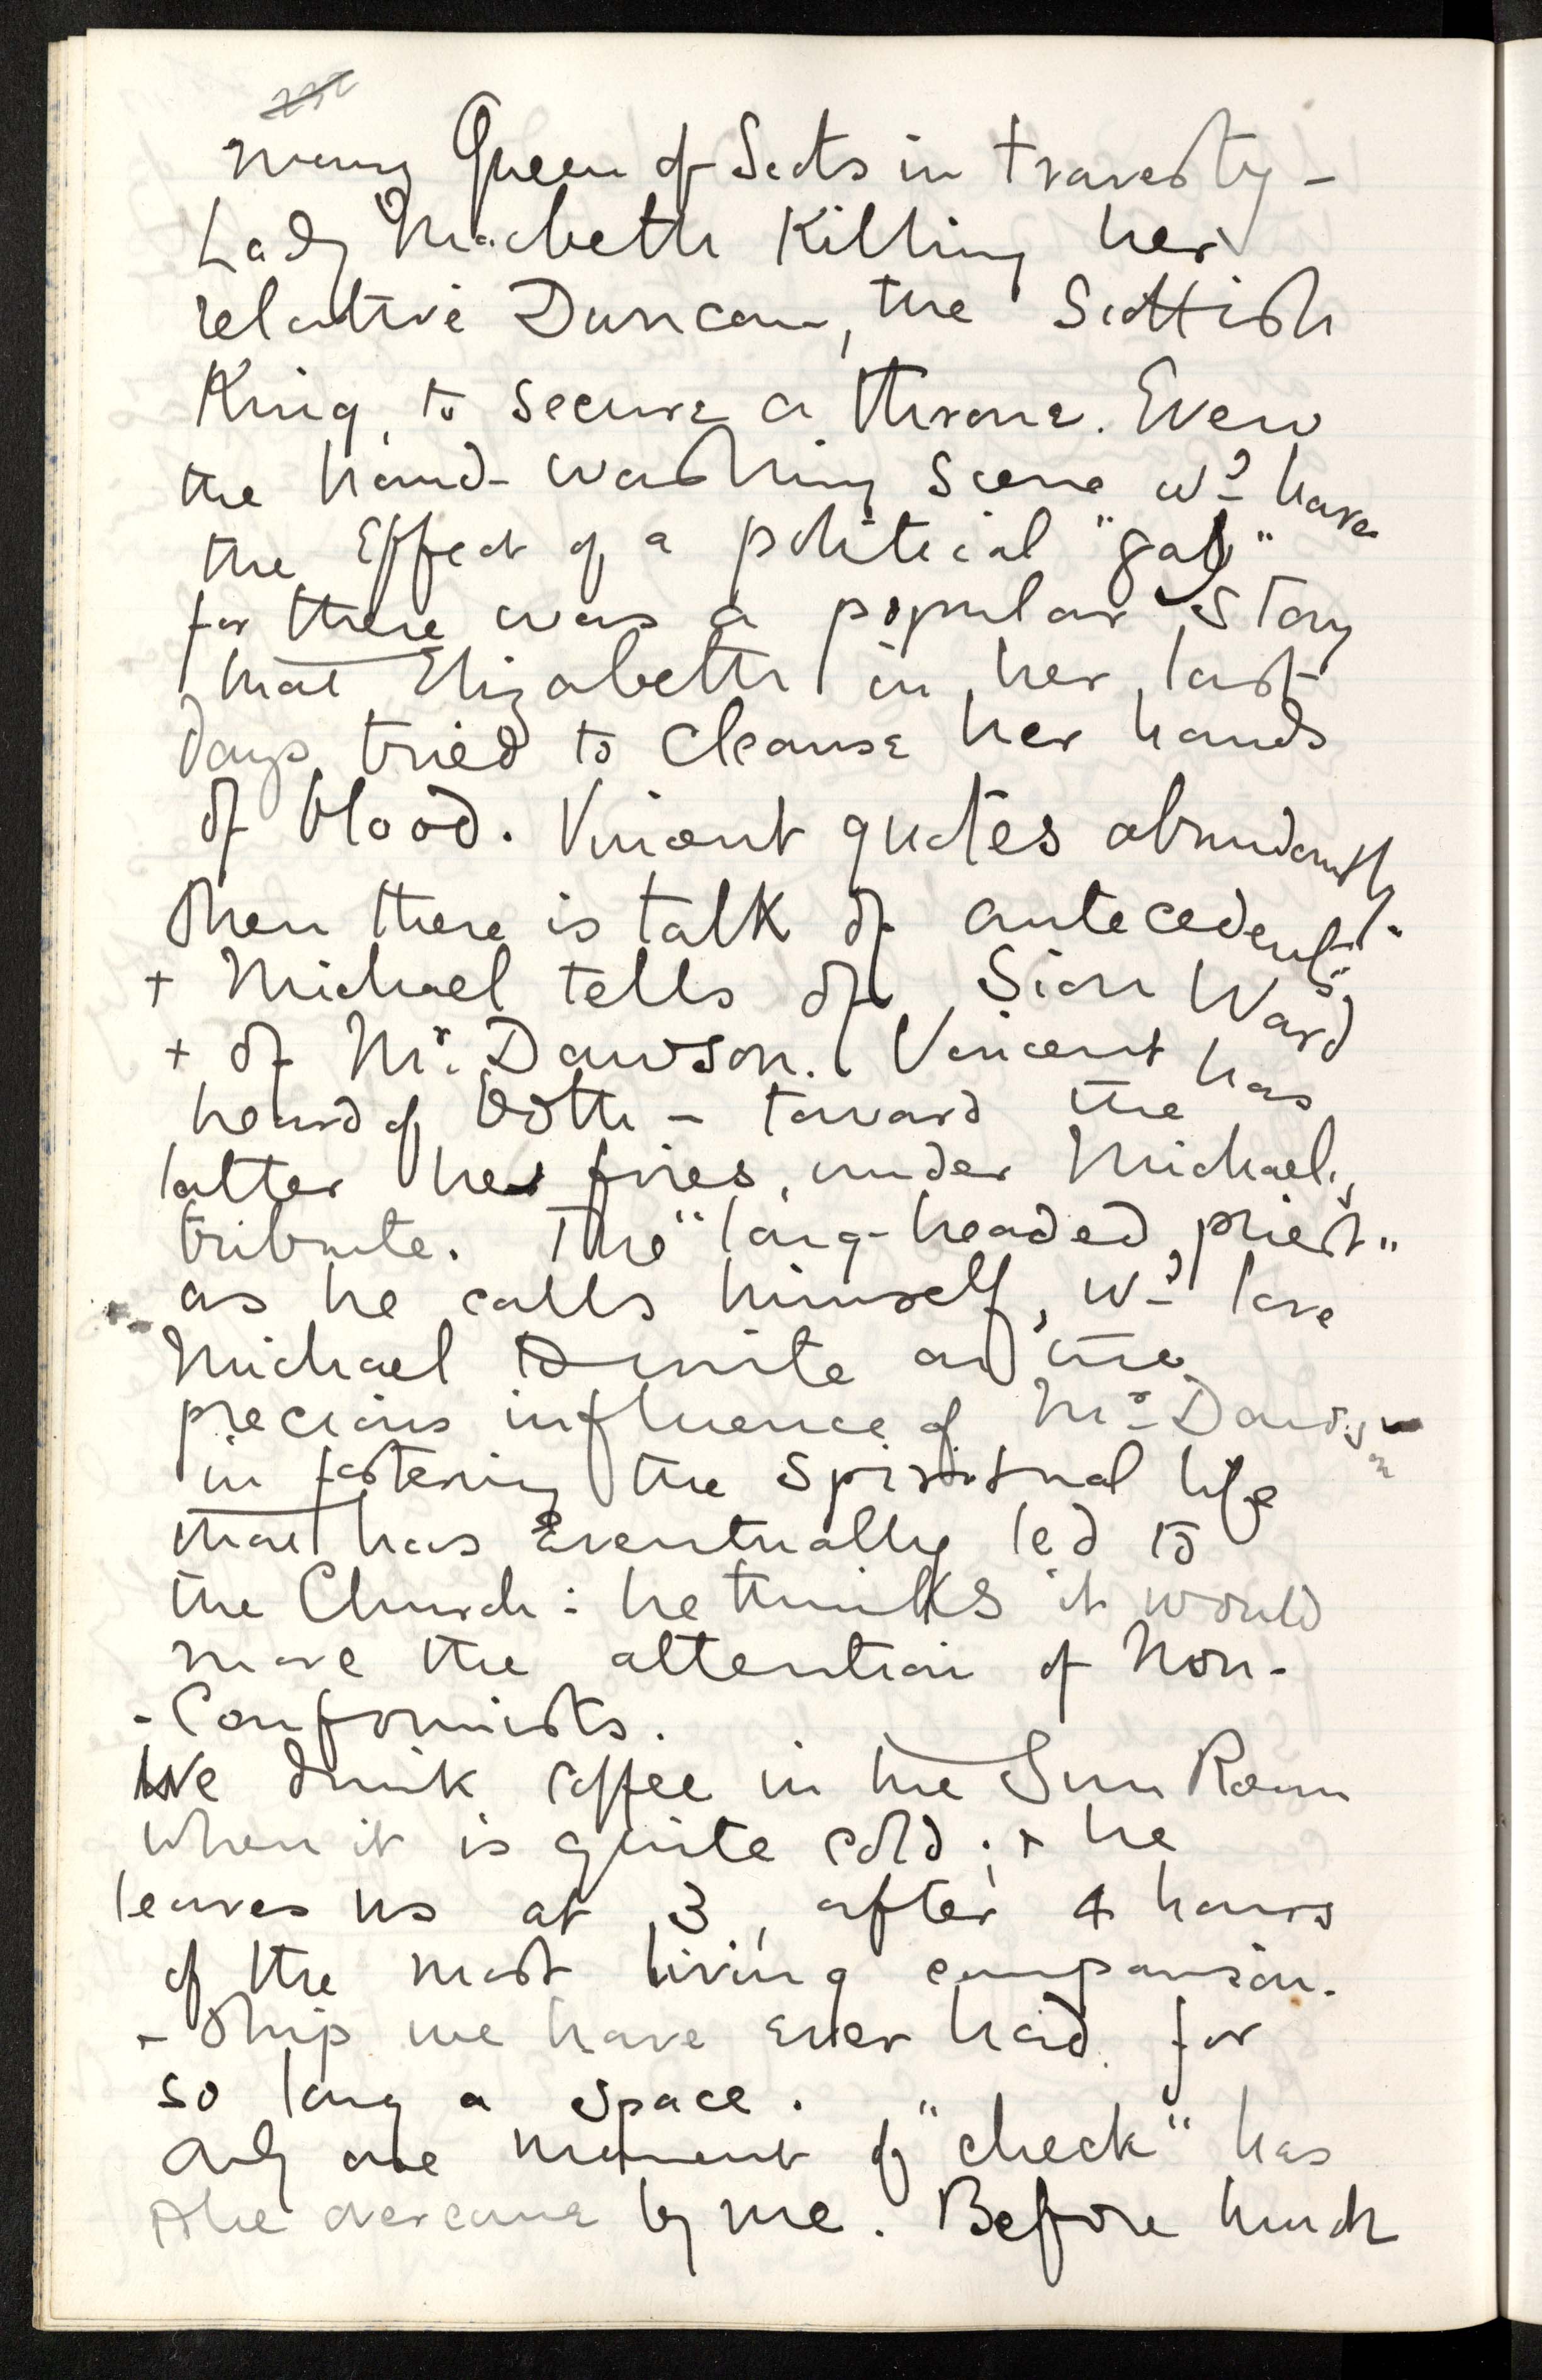 Mary Queen of Scots in travesty -
Lady Macbeth killing her
relative Duncan, the Scottish
King, to secure a throne. Even
the hand-washing scene wd have
the effect of a political "gag"
for there was a popular story
that Elizabeth in her last
days tried to cleanse her hands
of blood. Vincent quotes abundantly.
Then there is talk of antecedents:
+ Michael tells of Sion Ward
+ of Mr. Dawson. Vincent has
heard of both - toward the
latter he fires, under Michael's
tribute. The "long-headed priest"
as he calls himself, wd love
Michael to write on the
precious influence of Mr Dawson
in fostering the spiritual life
that has eventually led to
the Church: he thinks it would
move the attention of Non-
-Conformists.
We drink coffee in the Sun Room
when it is quite cold; + he
leaves us at 3, after 4 hours
of the most living companion-
-ship we have ever had for
so long a space.
Only one moment of "check" has
to be overcome by me. Before lunch